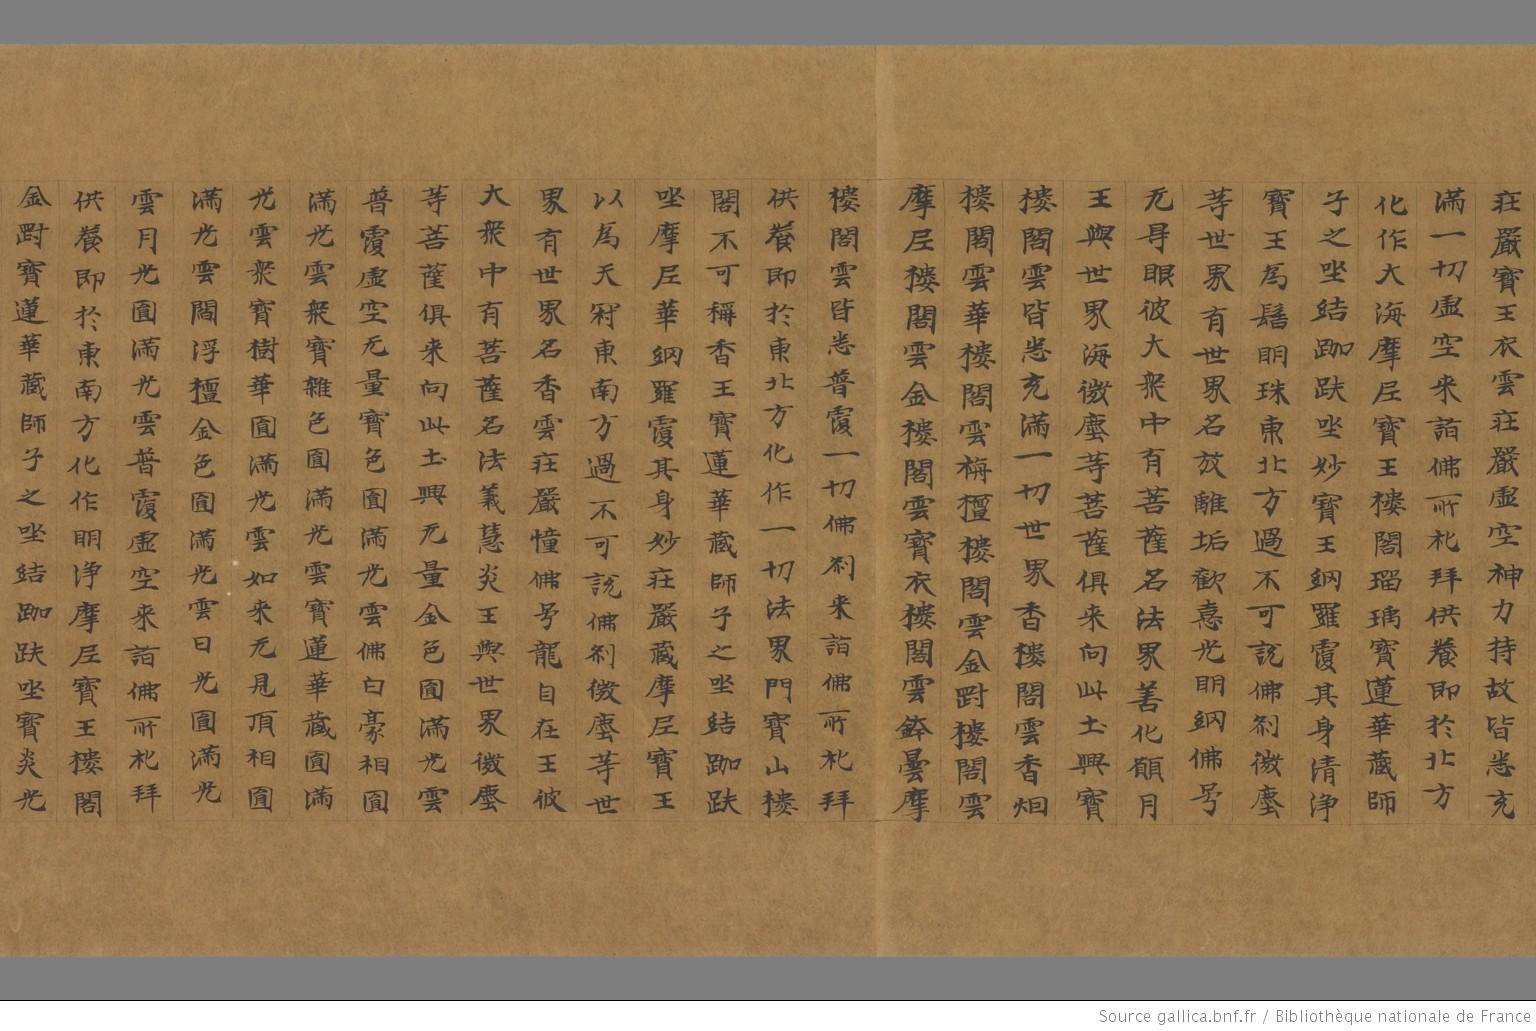 莊嚴寶王衣雲莊嚴虛空神力持故皆悉充
滿一切虛空来詣佛所礼拜供養即於北方
化作大海摩尼寶王樓閣瑠璃寶蓮華藏師
子之坐結跏趺坐妙寶王網羅覆其身清淨
寶王為髻明珠東北方過不可說佛剎微塵
等世界有世界名放離垢歡憙光明網佛号
无㝵眼彼大衆中有菩薩名法界善化願月
王與世界海微塵等菩薩俱来向此土興寶
樓閣雲皆悉充滿一切世界香樓閣雲香烟
樓閣雲華樓閣雲栴檀樓閣雲金剛樓閣雲
摩尼樓閣雲金樓閣雲寶衣樓閣雲鉢曇摩
樓閣雲皆悉普覆一切佛剎来詣佛所礼拜
供養即於東北方化作一切法界門寶山樓
閣不可稱香王寶蓮華藏師子之坐結跏趺
坐摩尼華網羅覆其身妙莊嚴藏摩尼寶王
以為天冠東南方過不可說佛剎微塵等世
界有世界名香雲莊嚴憧佛号龍自在王彼
大衆中有菩薩名法義慧炎王與世界微塵
等菩薩俱来向此土興无量金色圓滿光雲
普覆虛空无量寶色圓滿光雲佛白豪相圓
滿光雲衆寶雜色圓滿光雲寶蓮華藏圓滿
光雲衆寶樹華圓滿光雲如来无見頂相圓
滿光雲閻浮檀金色圓滿光雲日光圓滿光
雲月光圓滿光雲普覆虛空来詣佛所礼拜
供養即於東南方化作明淨摩尼寶王樓閣
金剛寶蓮華藏師子之坐結跏趺坐寶炎光
Source gallica.bnf.fr / Bibliothèque nationale de France